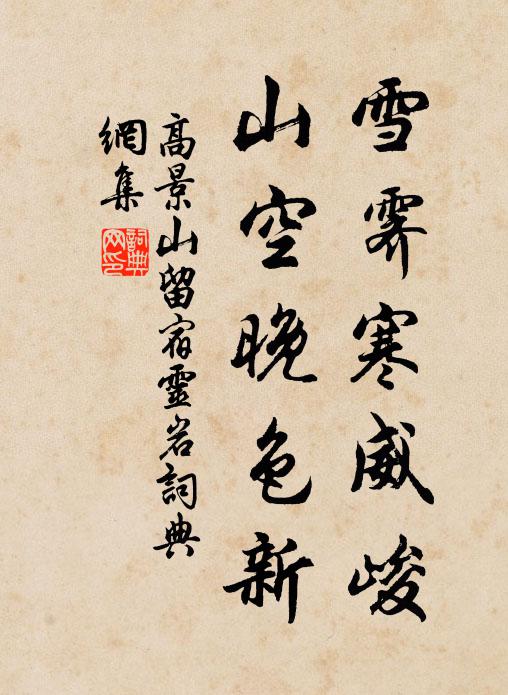 雪霽寒威峻
山空晚色新
高景山留宿靈岩詞典
網集
詞典網印